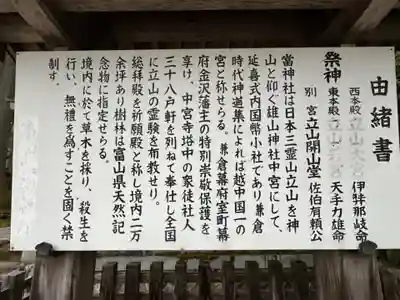 由緒書
祭神
西本殿 立山大宮 伊弉那岐命
東本殿 立山若宮 天手力雄命
別宮 立山開山堂 佐伯有頼公
當神社は日本三霊山立山を神
山と仰ぐ雄山神社中宮にして、
延喜式内国幣小社であり兼倉
時代神道集によれば越中国一の
宮と称せらる。兼倉幕府室町幕
府金沢藩主の特別崇敬保護を
享け、中宮寺塔中の家徒社人
三十八戸軒を列ねて奉仕し全国
に立山の霊験を布教せり。
総拝殿を祈願殿と称し境内二万
余坪あり樹林は富山県天然記
念物に指定せらる。
境内に於て草木を採り、殺生を
行い、無禮を為すことを固く禁
制す。